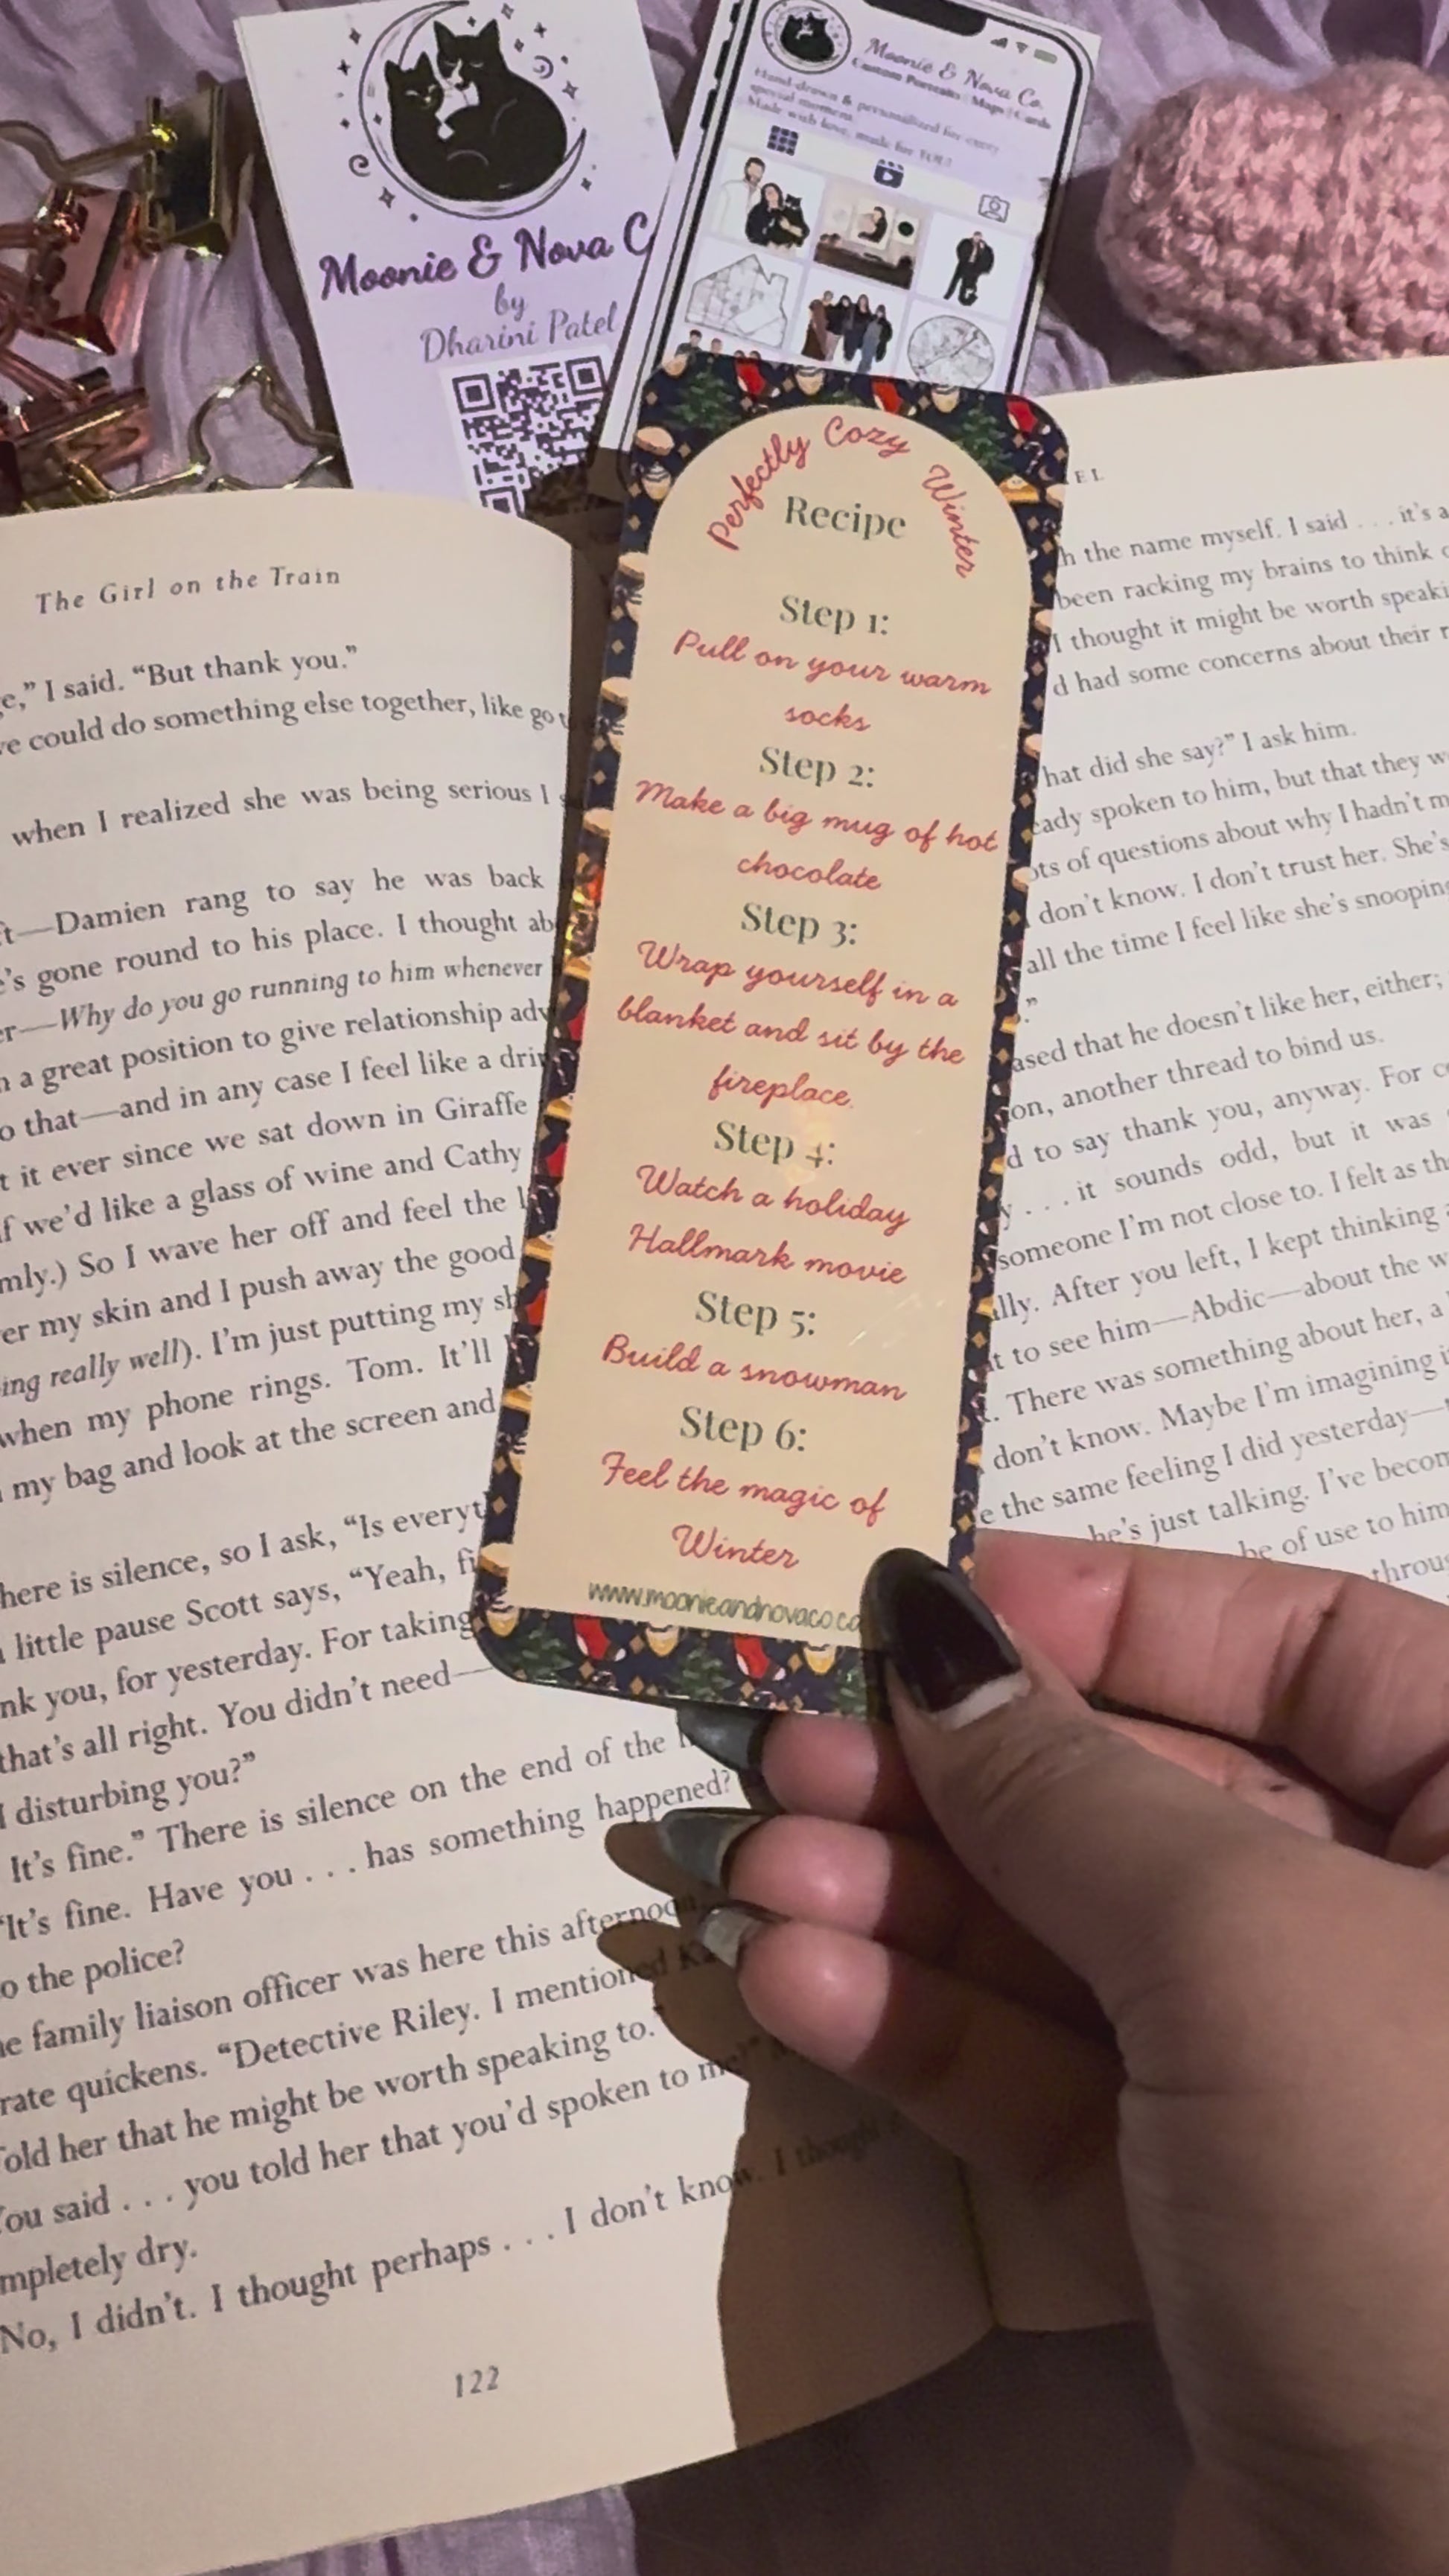 Moonie & Nova C
by
Dharini Patel
Moonie & Nova Co.
Custom Portraits | Maps | Cards
Hand-drawn & personalized for every
special moment.
Made with love, made for YOU!
Perfectly Cozy Winter
Recipe
Step 1:
Pull on your warm
socks
Step 2:
Make a big mug of hot
chocolate
Step 3:
Wrap yourself in a
blanket and sit by the
fireplace.
Step 4:
Watch a holiday
Hallmark movie
Step 5:
Build a snowman
Step 6:
Feel the magic of
Winter
www.moonieandnovaco.ca
The Girl on the Train
e,” I said. “But thank you.”
ve could do something else together, like go
when I realized she was being serious I
ft—Damien rang to say he was back
e’s gone round to his place. I thought ab
er—Why do you go running to him whenever
n a great position to give relationship adv
o that—and in any case I feel like a drin
t it ever since we sat down in Giraffe
if we’d like a glass of wine and Cathy
mly.) So I wave her off and feel the l
er my skin and I push away the good
ing really well). I’m just putting my sh
when my phone rings. Tom. It’ll
my bag and look at the screen and
here is silence, so I ask, “Is everyt
little pause Scott says, “Yeah, fi
nk you, for yesterday. For taking
that’s all right. You didn’t need—
I disturbing you?”
It’s fine.” There is silence on the end of the
“It’s fine. Have you . . . has something happened?
o the police?
he family liaison officer was here this afternoon
rate quickens. “Detective Riley. I mentioned Ka
Told her that he might be worth speaking to.”
You said . . . you told her that you’d spoken to me?”
mpletely dry.
No, I didn’t. I thought perhaps . . . I don’t know. I thought
122
EL
h the name myself. I said . . . it’s a
been racking my brains to think
I thought it might be worth speaki
d had some concerns about their
hat did she say?” I ask him.
eady spoken to him, but that they w
ots of questions about why I hadn’t m
don’t know. I don’t trust her. She’s
all the time I feel like she’s snooping
.”
ased that he doesn’t like her, either;
on, another thread to bind us.
d to say thank you, anyway. For c
y . . . it sounds odd, but it was
someone I’m not close to. I felt as th
lly. After you left, I kept thinking
t to see him—Abdic—about the w
. There was something about her, a
don’t know. Maybe I’m imagining i
e the same feeling I did yesterday—
he’s just talking. I’ve becom
be of use to him
throug